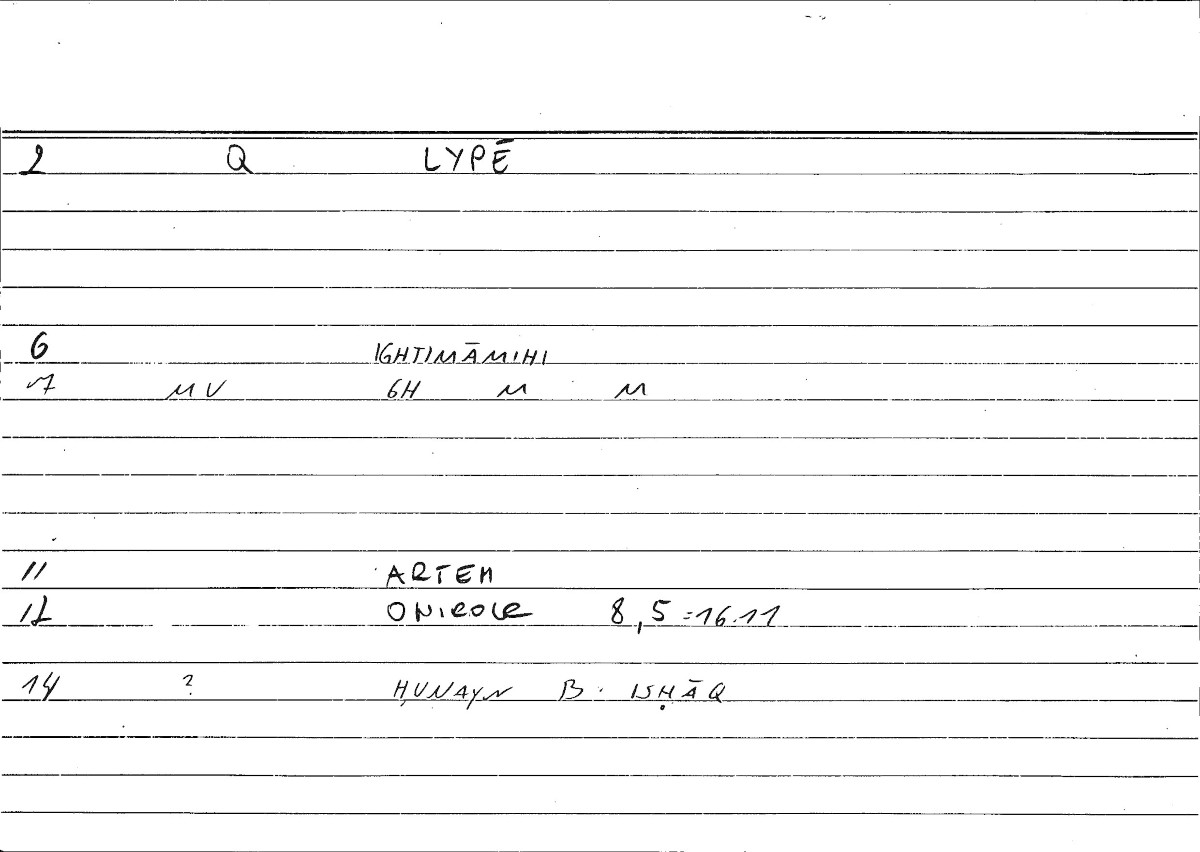 2 Q LYPĒ
6 IGHTIMĀMIHI
7 MV GH M M
11 ARTEM
12 ONIROCR 8,5=16.11
14 ? ḤUNAYN B. ISḤĀQ